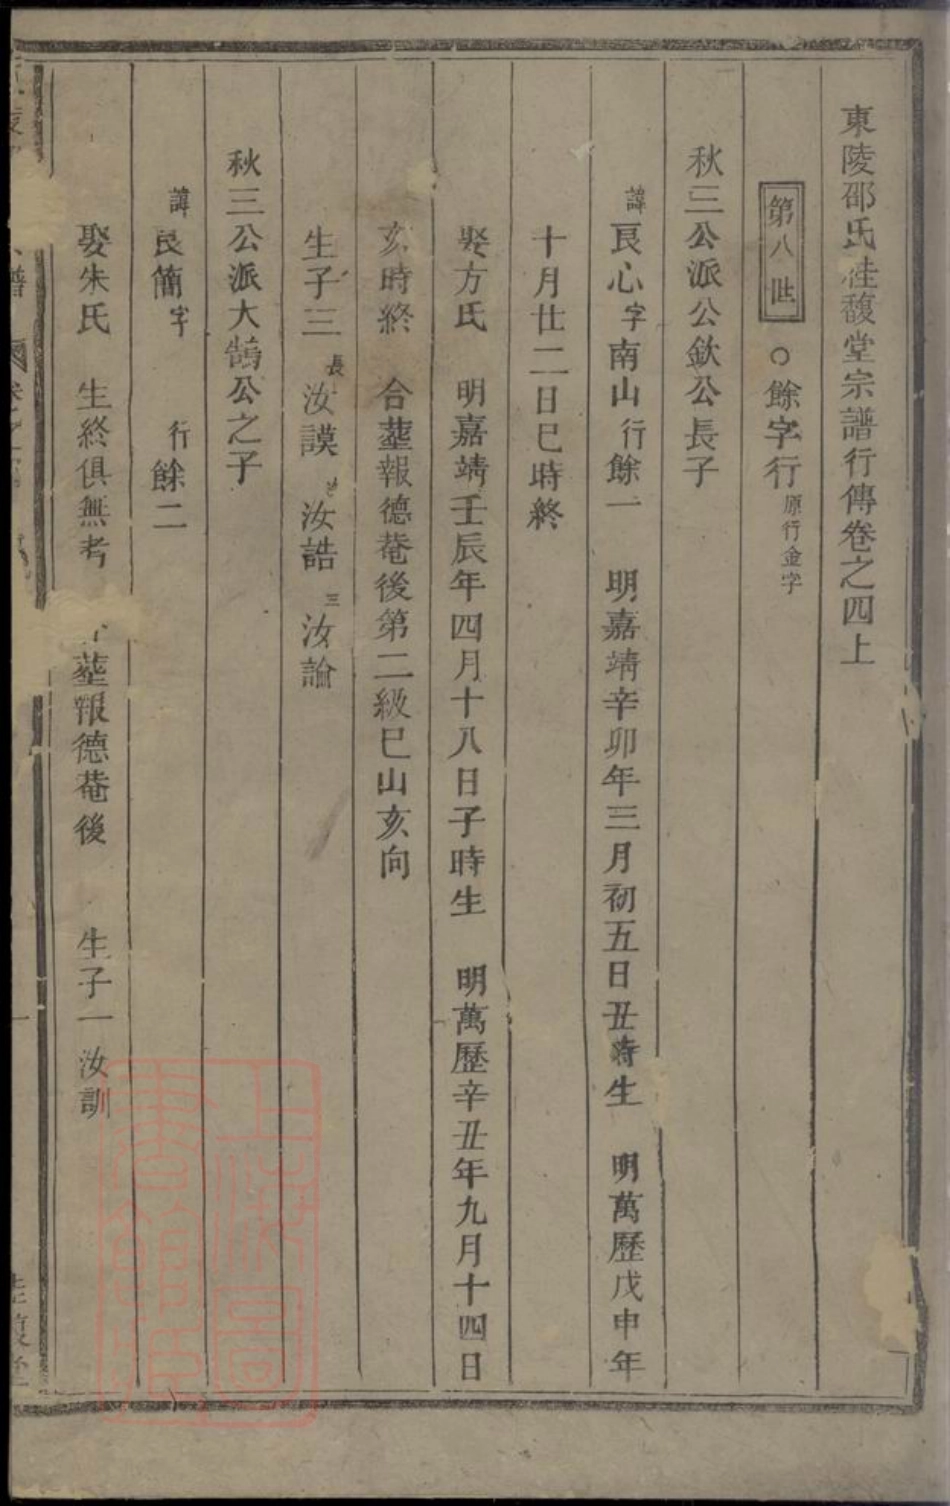 東陵邵氏桂馥堂宗譜行傳卷之四上
第八世 ○餘字行原行金字
秋三公派公欽公長子
諱艮心字南山行餘一 明嘉靖辛卯年三月初五日丑時生 明萬歷戊申年
十月廿二日巳時終
娶方氏 明嘉靖壬辰年四月十八日子時生 明萬歷辛丑年九月十四日
亥時終 合塟報德菴後第二級巳山亥向
生子三 長汝謨 汝誥 三汝論
秋三公派大鵠公之子
諱艮簡字 行餘二
娶朱氏 生終俱無考 塟報德菴後 生子一 汝訓
譜
上海圖書館藏